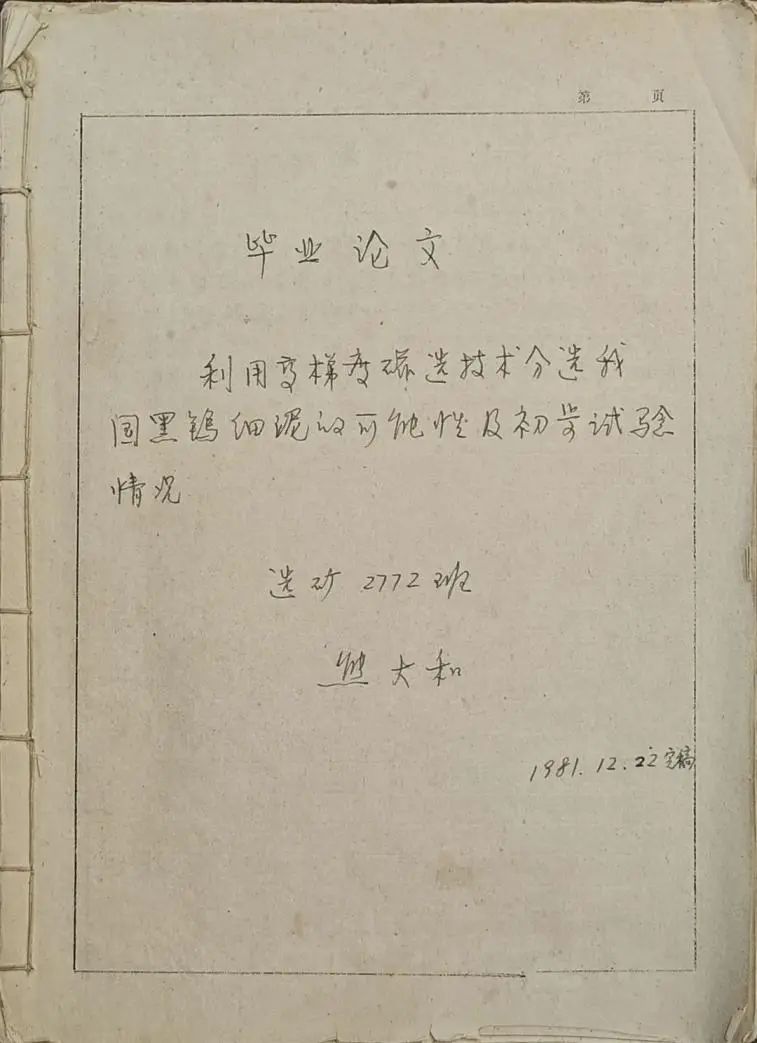 第 頁
毕业论文
利用高梯度磁选技术分选我
国黑钨细泥的可能性及初步试验
情况
选矿2772班
熊大和
1981.12.22定稿